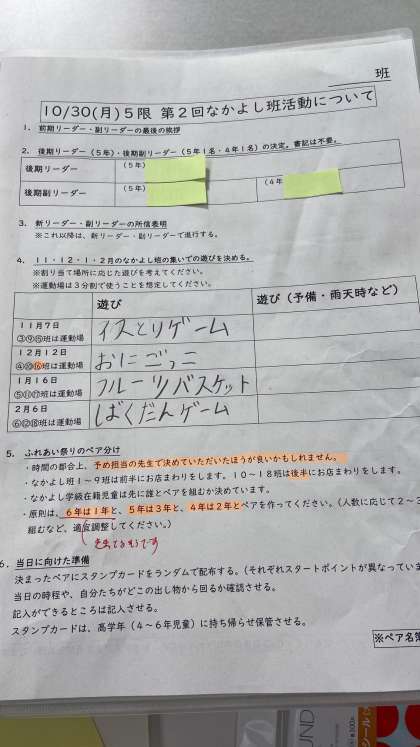 班
10/30(月)5限 第2回なかよし班活動について
1. 前期リーダー・副リーダーの最後の挨拶
2. 後期リーダー(5年)・後期副リーダー(5年1名・4年1名)の決定。書記は不要。
後期リーダー (5年)
後期副リーダー (5年) (4年
3. 新リーダー・副リーダーの所信表明
※これ以降は、新リーダー・副リーダーで進行する。
4. 11・12・1・2月のなかよし班の集いでの遊びを決める。
※割り当て場所に応じた遊びを考えてください。
※運動場は3分割で使うことを想定してください。
遊び 遊び(予備・雨天時など)
11月7日 イスとりゲーム
③⑨⑮班は運動場
12月12日 おにごっこ
④⑩⑯班は運動場
1月16日 フルーツバスケット
⑤⑪⑰班は運動場
2月6日 ばくだんゲーム
⑥⑫⑱班は運動場
5. ふれあい祭りのペア分け
・時間の都合上、予め担当の先生で決めていただいたほうが良いかもしれません。
・なかよし班1~9班は前半にお店まわりをします。10~18班は後半にお店まわりをします。
・なかよし学級在籍児童は先に誰とペアを組むか決めています。
・原則は、6年は1年と、5年は3年と、4年は2年とペアを作ってください。(人数に応じて2~3
組むなど、適宜調整してください。)
6. 当日に向けた準備
決まったペアにスタンプカードをランダムで配布する。(それぞれスタートポイントが異なっていま
当日の時程や、自分たちがどこの出し物から回るか確認させる。
記入ができるところは記入させる。
スタンプカードは、高学年(4~6年児童)に持ち帰らせ保管させる。
※ペア名簿